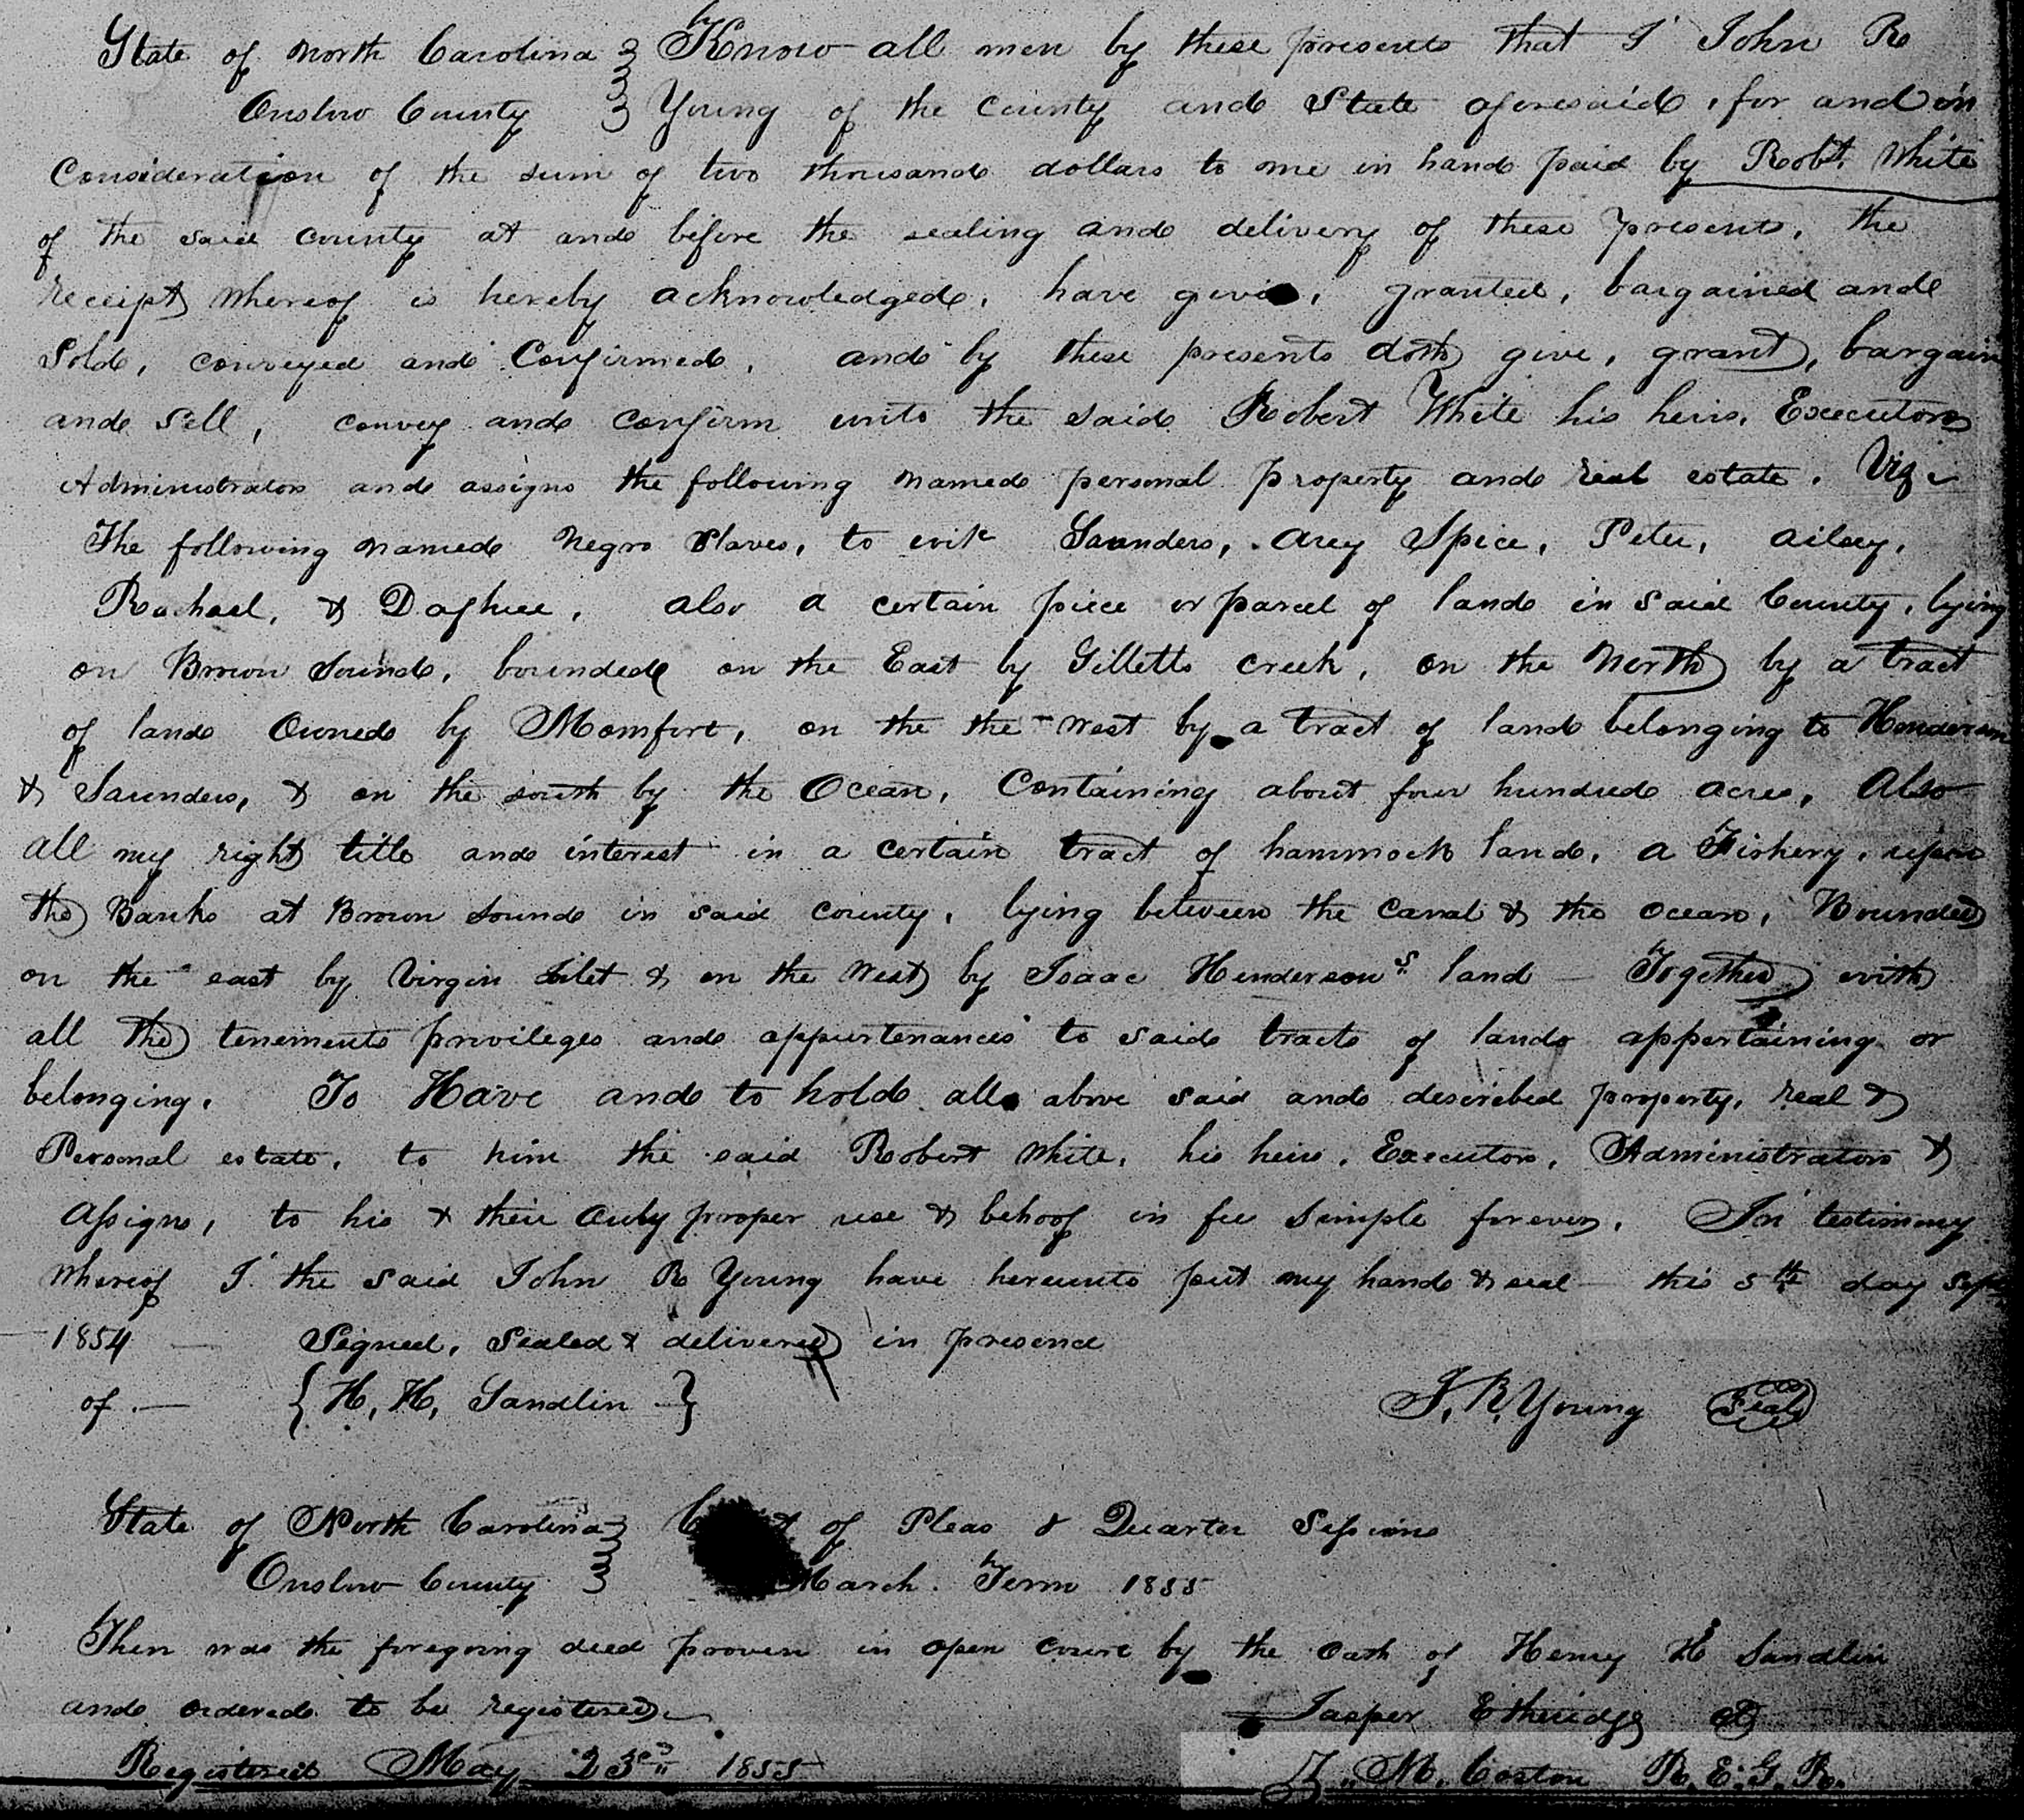 State of North Carolina } Know all men by these presents that I John R
Onslow County } Young of the county and State aforesaid, for and in
Consideration of the sum of two thousand dollars to me in hand paid by Robt. White
of the said county at and before the sealing and delivery of these presents, the
receipt whereof is hereby acknowledged, have given, granted, bargained and
Sold, conveyed and Confirmed, and by these presents doth give, grant, bargain
and Sell, convey and confirm unto the said Robert White his heirs, Executors
Administrators and assigns the following named personal property and real estate. Viz
The following named Negro Slaves, to wit Saunders, Arey Spice, Peter, Ailey,
Rachael, & Daphne, also a certain piece or parcel of land in said County, lying
on Brown Sound, bounded on the East by Gilletts Creek, on the North by a tract
of land Owned by Momfort, on the the west by a tract of land belonging to Henderson
& Saunders, & on the south by the Ocean, Containing about four hundred acres, Also
all my right title and interest in a certain tract of hammock land, a Fishery, upon
the Banks at Brown Sound in said county, lying between the Canal & the Ocean, Bounded
on the east by Virgin Inlet & on the West by Isaac Hendersons land — Together with
all the tenements privileges and appurtenances to said tracts of land appertaining or
belonging. To Have and to hold all above said and described property, real &
Personal estate, to him the said Robert White, his heirs, Executors, Administrators &
Assigns, to his & their only proper use & behoof in fee simple forever. In testimony
whereof I the said John R Young have hereunto put my hand & seal — this 5th day Sept
1854 — Signed, Sealed & delivered in presence
of — { H, H, Sandlin } J. R. Young Seal
State of North Carolina } of Pleas & Quarter Sessions
Onslow County } March Term 1855
Then was the foregoing deed proven in open court by the Oath of Henry H Sandlin
and ordered to be registered. Jasper Etheridge
Registered May 23rd 1855 M. Coston R. E. G. R.